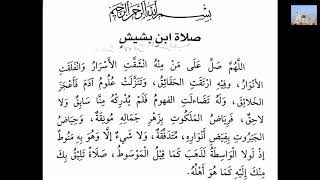 بِسْمِ اللهِ الرَّحْمَنِ الرَّحِيمِ
صلاة ابن بشيش
اللَّهُمَّ صَلِّ عَلَى مَنْ مِنْهُ انْشَقَّتِ الْأَسْرَارُ وَانْفَلَقَتِ
الْأَنْوَارُ، وَفِيهِ ارْتَقَتِ الْحَقَائِقُ، وَتَنَزَّلَتْ عُلُومُ آدَمَ فَأَعْجَزَ
الْخَلَائِقَ، وَلَهُ تَضَاءَلَتِ الْفُهُومُ فَلَمْ يُدْرِكْهُ مِنَّا سَابِقٌ وَلَا
لَاحِقٌ، فَرِيَاضُ الْمَلَكُوتِ بِزَهْرِ جَمَالِهِ مُونِقَةٌ، وَحِيَاضُ
الْجَبَرُوتِ بِفَيْضِ أَنْوَارِهِ، مُتَدَفِّقَةٌ، وَلَا شَيْءَ إِلَّا وَهُوَ بِهِ مَنُوطٌ
إِذْ لَوْلَا الْوَاسِطَةُ لَذَهَبَ كَمَا قِيلَ الْمَوْسُوطُ، صَلَاةً تَلِيقُ بِكَ
مِنْكَ إِلَيْهِ كَمَا هُوَ أَهْلُهُ.